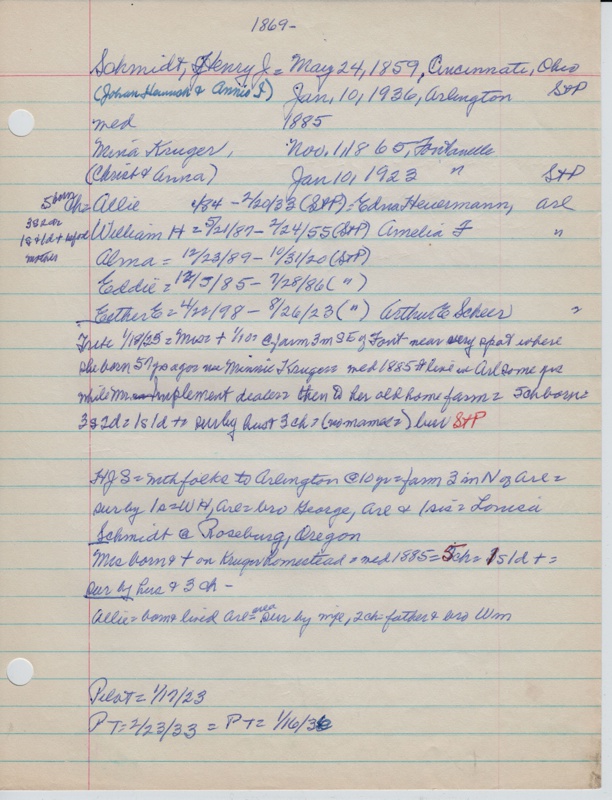 1869-
Schmidt, Henry J = May 24, 1859, Cincinnati, Ohio
(Johan Heinrich & Annie I) Jan, 10, 1936, Arlington S+P
med 1885
Mina Kruger, Nov. 1, 1865, Fontanelle
(Christ & Anna) Jan 10, 1923 " S+P
5 born ch = Allie /84 - 2/20/33 (S+P) = Edna Heuermann, arl
3s 2d = William H = 5/21/87 - 2/24/55 (S+P) Amelia F "
1s & 1d + before
mother Alma = 12/23/89 - 10/31/20 (S+P)
Eddie = 12/5/85 - 7/28/86 (")
Esther E = 4/22/98 - 8/26/23 (") Arthur E Scheer "
1/18/23 = Mrs + 1/10 @ farm 3m SE of Font near very spot where
she born 57 yrs ago = nee Minnie Kruger = med 1885 & live in Arl some yrs
while Mr. Implement dealer = then to her old home farm = 5 ch born =
3s 2d = 1s 1d + = sur by husb 3 ch = (no names) bur S+P
HJS = with folks to Arlington @ 10 yr = farm 3 mi N of Arl =
sur by 1s = WH, Arl = bro George, Arl & 1 sis = Louisa
Schmidt @ Roseburg, Oregon
Mrs born & + on Kruger homestead = med 1885 = 5 ch = 1s 1d + =
sur by hus & 3 ch -
Allie = born & lived Arl = area sur by wife, 2 ch = father & bro Wm
Pilot = 1/17/23
PT = 2/23/33 = PT = 1/16/36